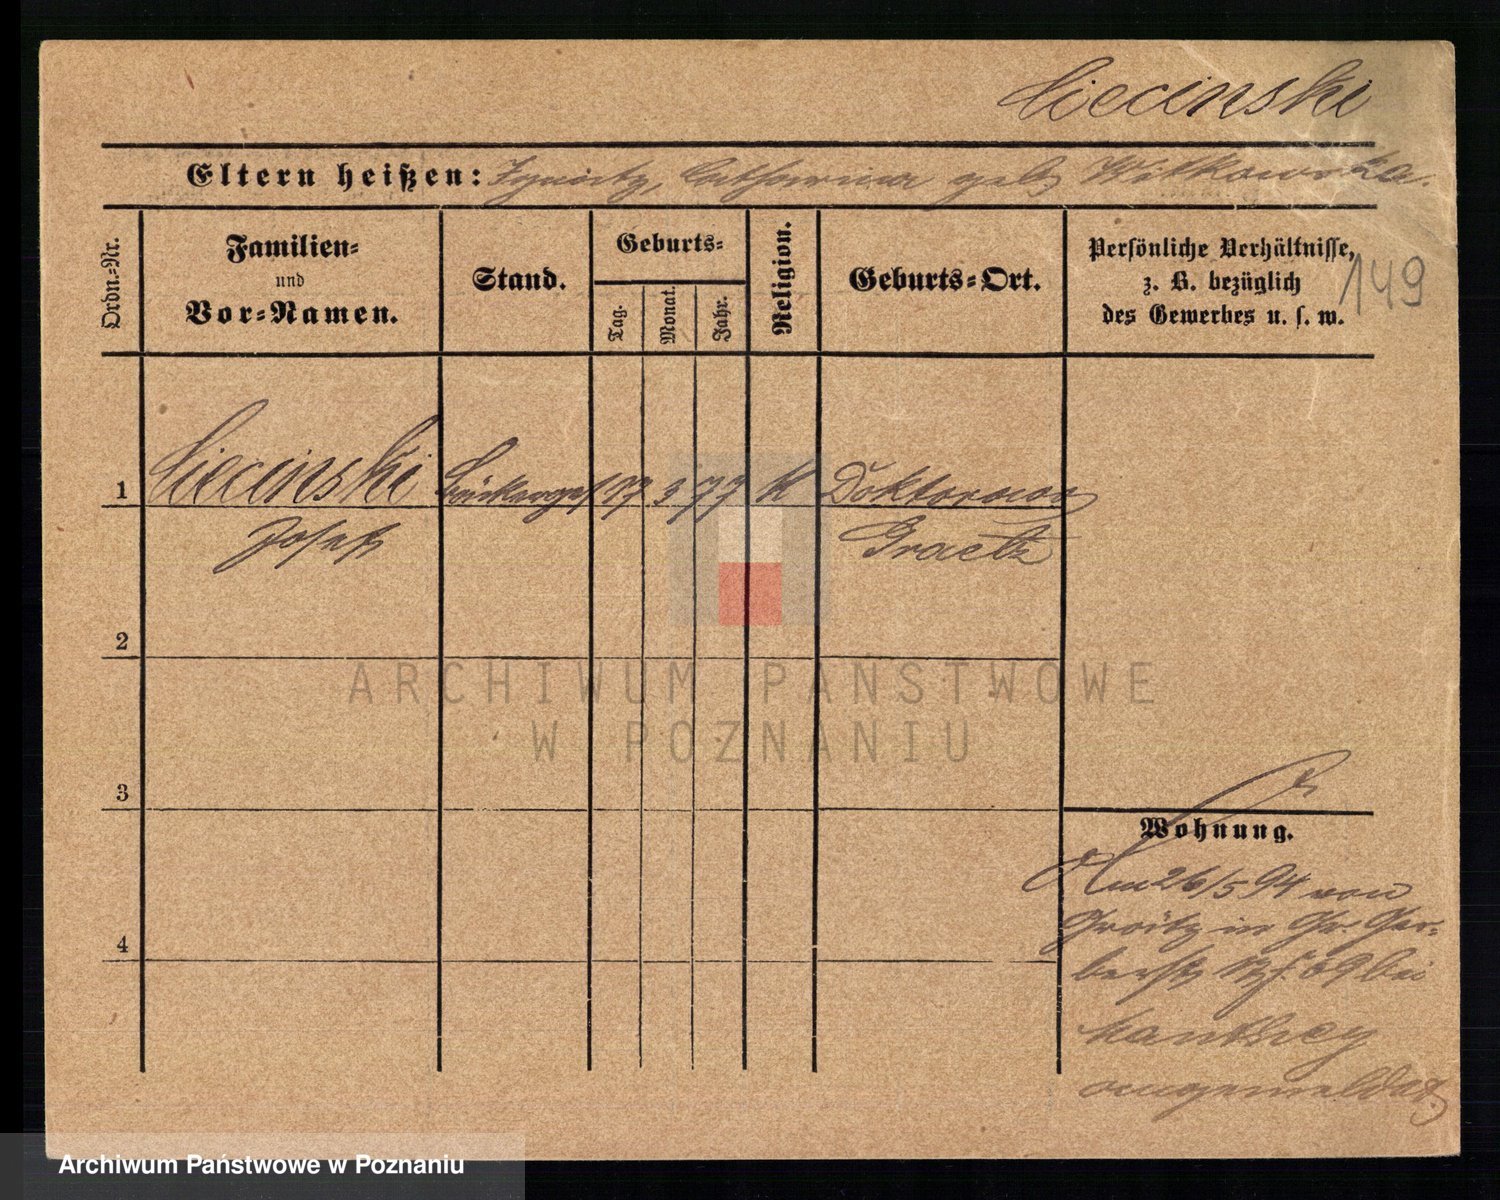 Ciecinski
Eltern heißen: Ignatz, Catharina geb Witkowska.
Ordn.-Nr.
Familien-
und
Vor-Namen.
Stand.
Geburts-
Tag.
Monat.
Jahr.
Religion.
Geburts-Ort.
Persönliche Verhältnisse,
z. B. bezüglich
des Gewerbes u. s. w.
149
1 Ciecinski Bäckerges 17 3 77 K Doktorowo
Josef Graetz
2
ARCHIWUM PAŃSTWOWE
W POZNANIU
3
Wohnung.
Am 26/5 94 von
Grätz in Gr. Ger-
berstr 69 bei
Manthey
angemeldet.
4
Archiwum Państwowe w Poznaniu